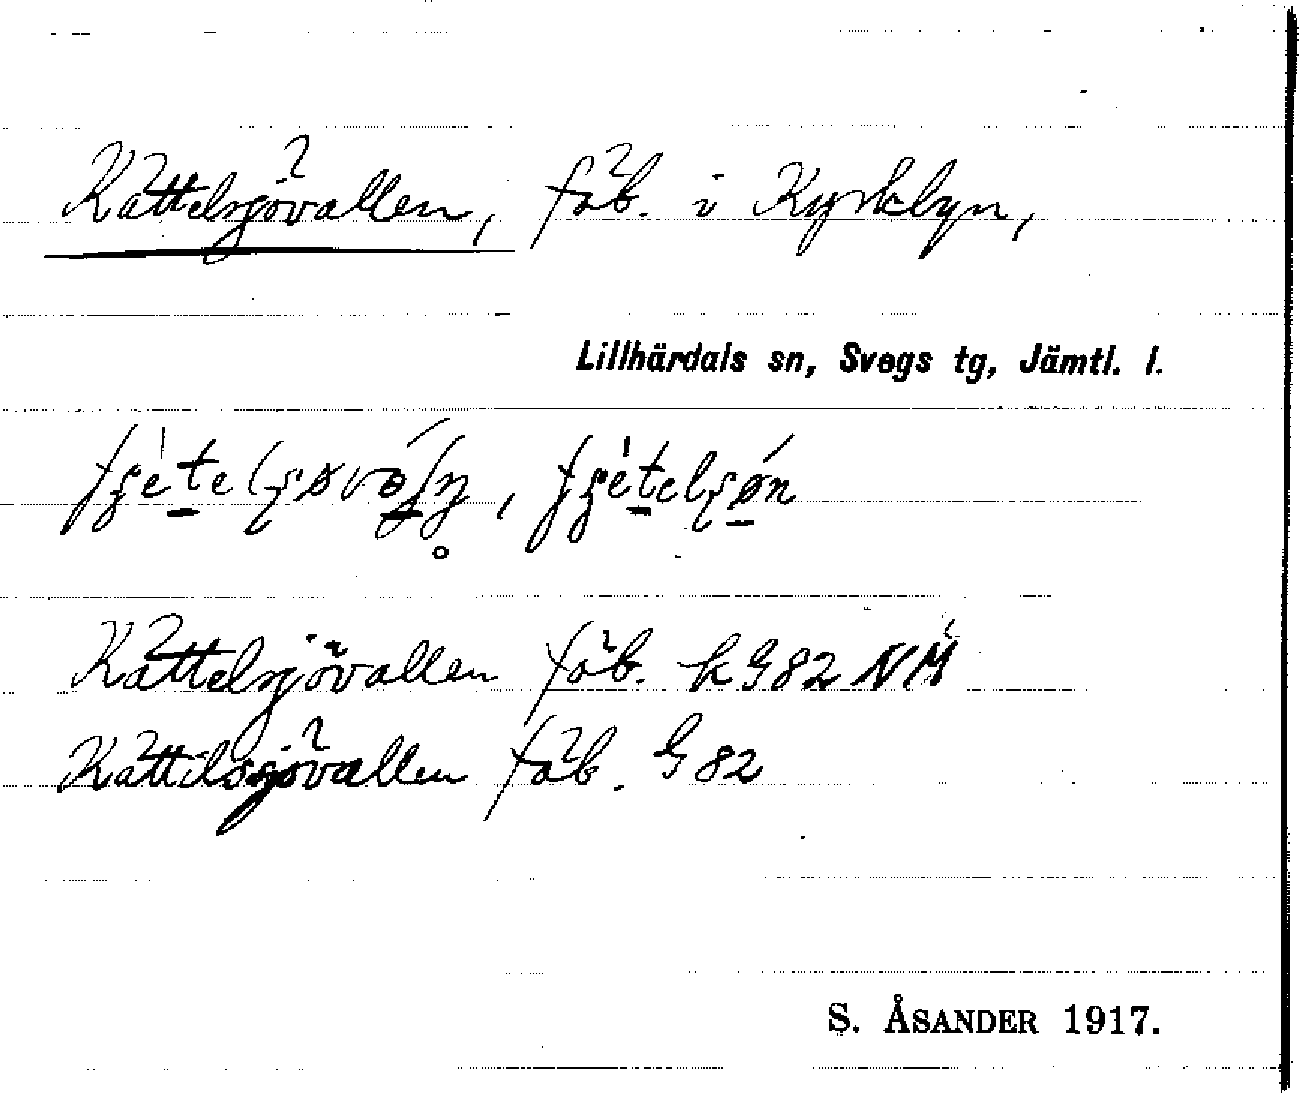 Kättelsjövallen, fäb. i Kyrkbyn,
Lillhärdals sn, Svegs tg, Jämtl. l.
Kättelsjövallen fäb. k G82 NM
Kättilssjövallen fäb. G 82
S. ÅSANDER 1917.